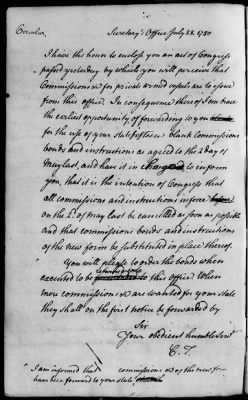 Circular
Secretary's Office July 28. 1780
I have the honor to enclose you an act of Congress
passed yesterday by which you will perceive that
Commissions &c for private armed vessels are to issue
from this office. In consequence thereof I embrace
the earliest opportunity of forwarding to you
for the use of your state fifteen blank Commissions
bonds and instructions as agreed to the 2 day of
May last, and have it in charge to inform
you, that it is the intention of Congress that
all commissions and instructions in force before
on the 2d. of may last be cancelled as soon as possible
and that commissions bonds and instructions
of the new form be substituted in place thereof.
You will please to order the bonds when
executed to be returned to this office When
more commissions &c are wanted for your state
they shall on the first notice be forwarded by
Sir
Your obedient humble Servt
C. T.
I am informed that commissions &c of the new form
have been forward to your state